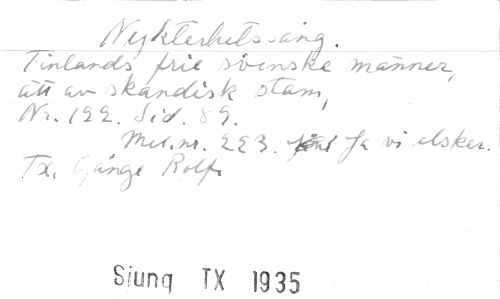 Nykterhetssång.
Finlands frie svenske männer,
ätt av skandisk stam,
Nr. 122. Sid. 89.
Mel.nr. 223. Ja vi elsker.
Tx. Gånge Rolf.
Sjung TX 1935